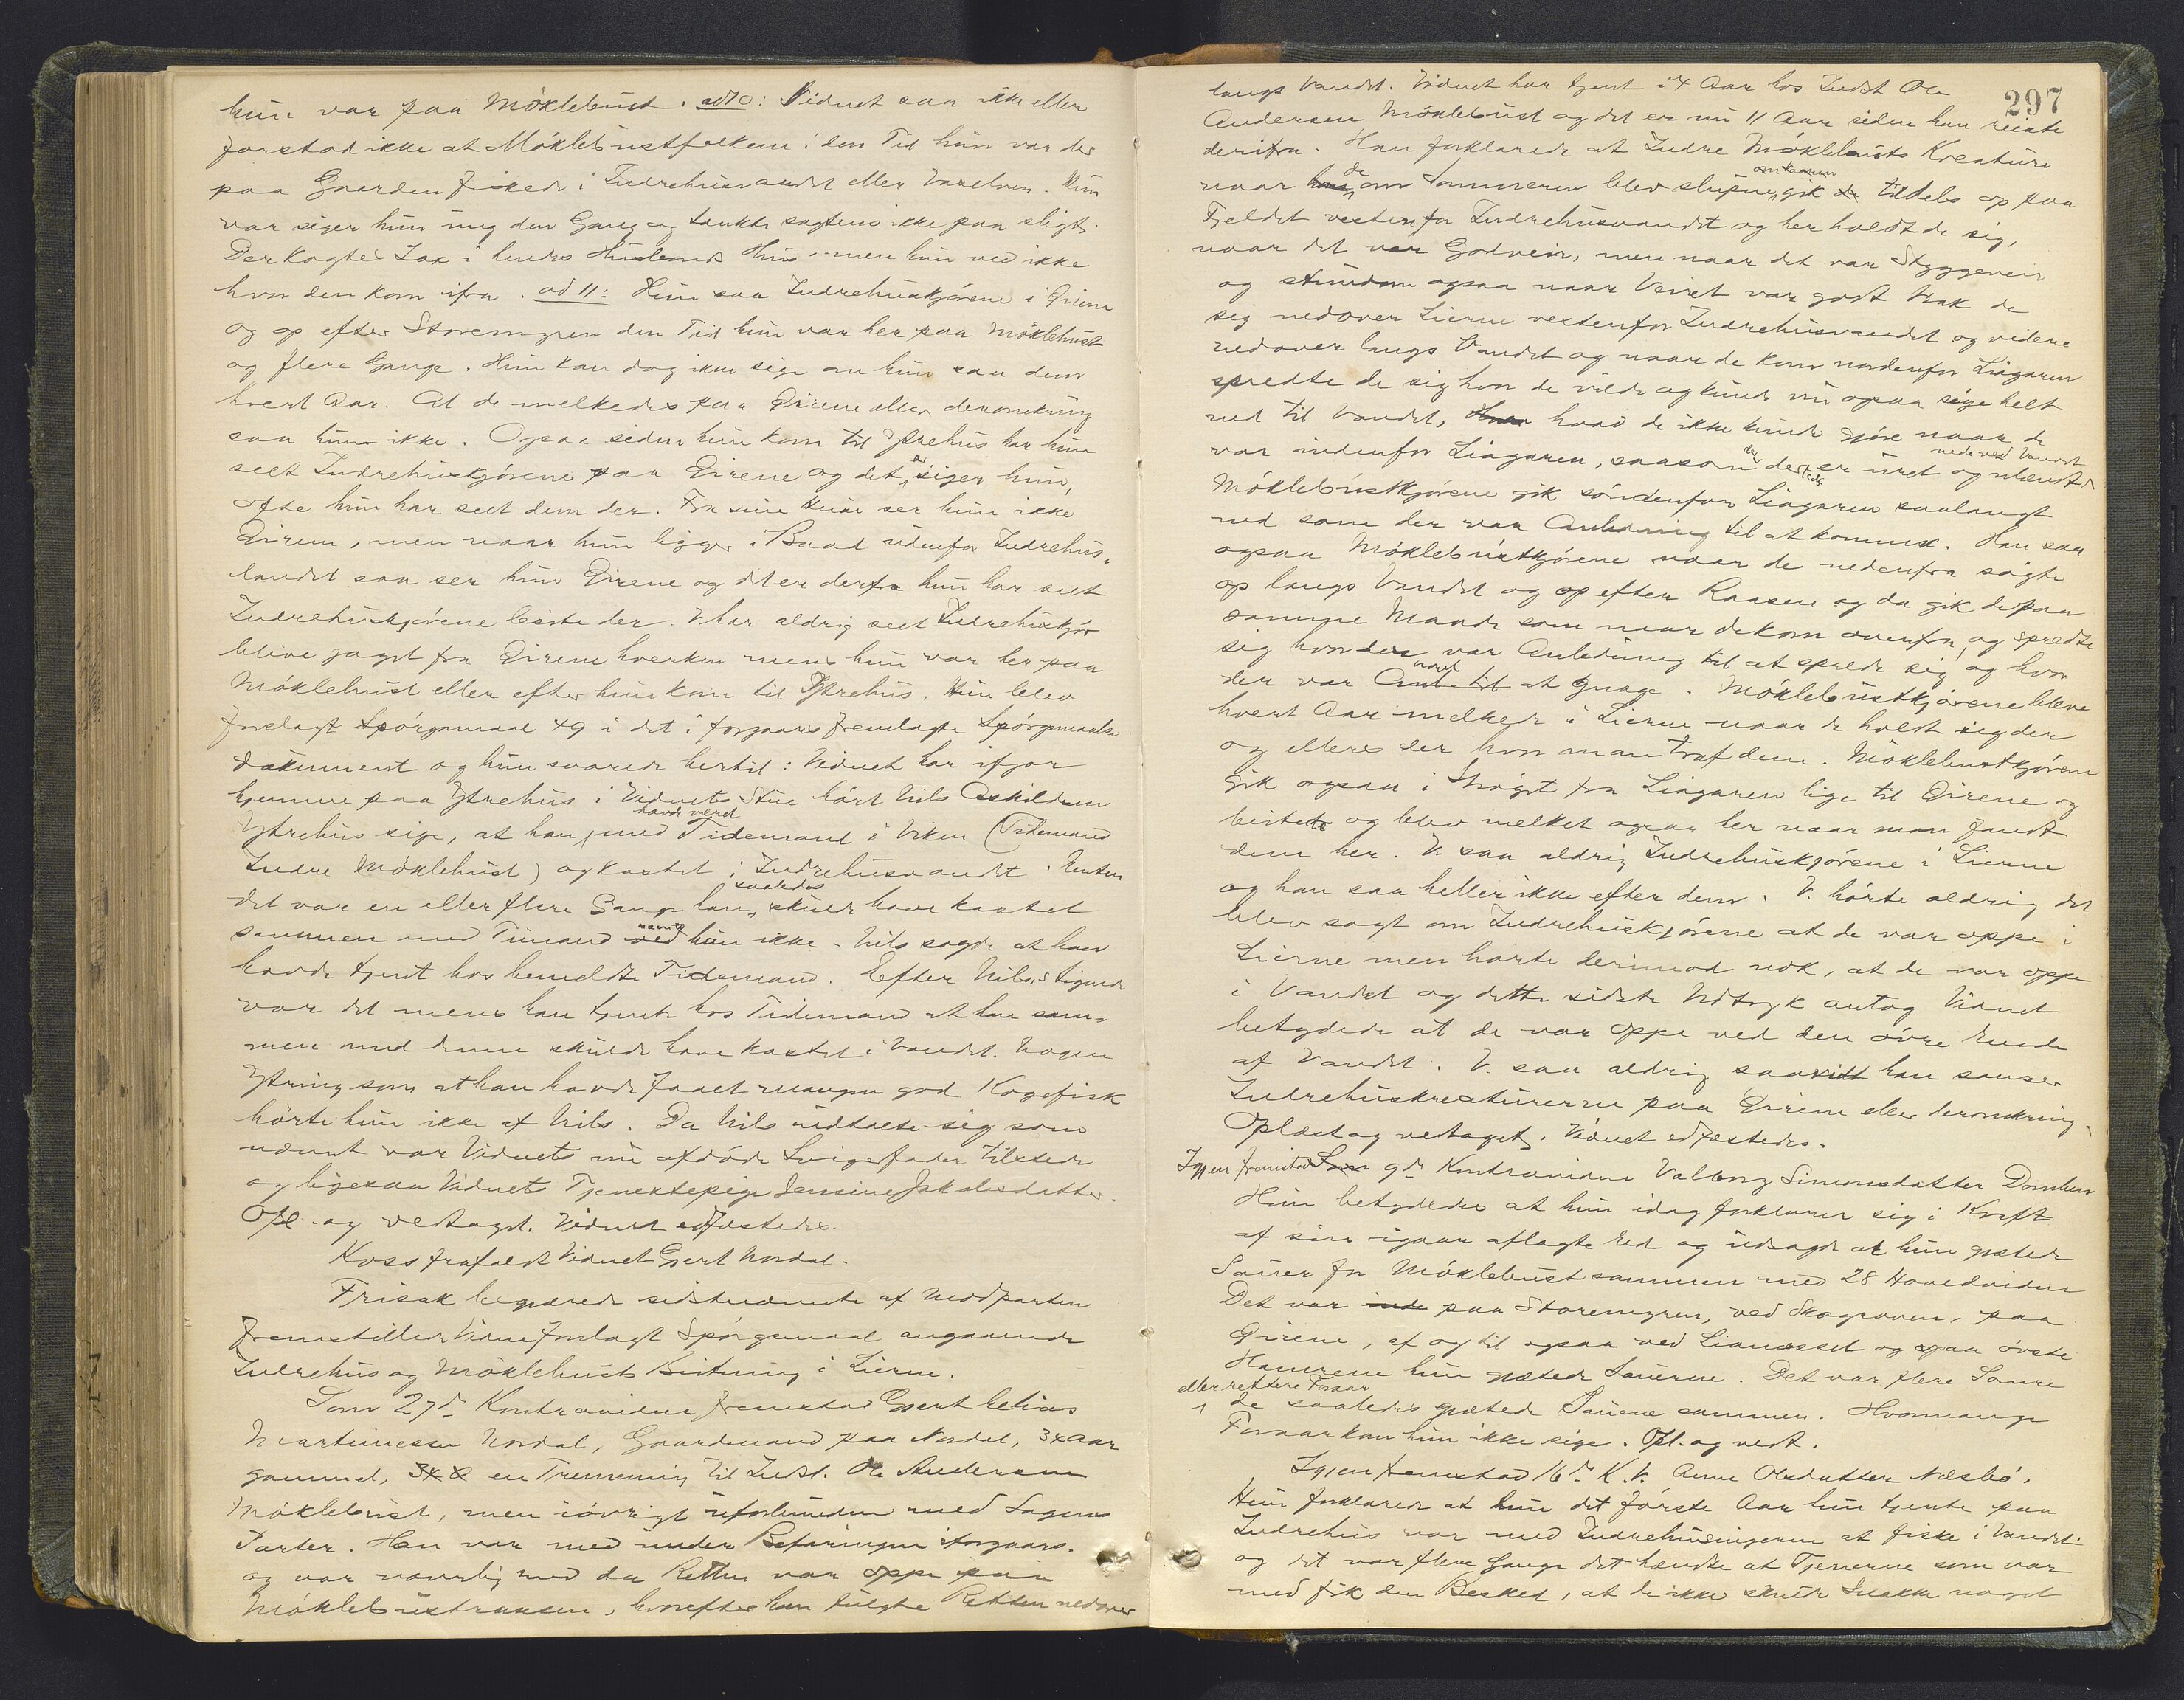 hun var paa Möklebust. ad 10: Vidnet saa ikke eller
forstod ikke at Möklebustfolkene i den Tid hun var der
paa Gaarden fiskede i Indrehusvandet eller Vaxelven. Hun
var siger hun ung den Gang og tænkte sagtens ikke paa sligt.
Der kogtes Lax i hendes Husbonds Hus men hun ved ikke
hvor den kom ifra. ad 11: Hun saa Indrehuskjörene i Eirene
og op efter Storemyren den Tid hun var her paa Möklebust
og flere Gange. Hun kan dog ikke sige om hun saa dem
hvert Aar. At de melkedes paa Eirene eller deromkring
saa hun ikke. Ogsaa siden hun kom til Ytrehus har hun
seet Indrehuskjörene paa Eirene og det er, siger hun,
ofte hun har seet dem der. Fra sine Huse ser hun ikke
Eirene, men naar hun ligger i Baad udenfor Indrehus-
landet saa ser hun Eirene og det er derfra hun har seet
Indrehuskjörene beite der. V. har aldrig seet Indrehuskjör
blive jaget fra Eirene hverken mens hun var her paa
Möklebust eller efter hun kom til Ytrehus. Hun blev
forelagt Spörgsmaal 49 i det i forgaars fremlagte Spörgsmaals
dokument og hun svarede hertil: Vidnet har ifjor
hjemme paa Ytrehus i Vidnets Stue hört Nils Askildsen
Ytrehus sige, at han havde været med Tidemand i Viken (Tidemand
Indre Möklebust) og kastet i Indrehusvandet. Enten
det var en eller flere Gange han saaledes skulde have kastet
sammen med Timand nævnte ved hun ikke. Nils sagde at han
havde tjent hos bemeldte Tidemand. Efter Nils's Sigende
var det mens han tjente hos Tidemand at han sam-
men med denne skulde have kastet i Vandet. Nogen
Ytring som at han havde faaet mangen god Kogefisk
hörte hun ikke af Nils. Da Nils udtalte sig som
nævnt var Vidnets nu afdöde Svigerfader tilstede
og ligesaa Vidnets Tjenestepige Jensine Jakobsdatter.
Opl. og vedtaget. Vidnet edfæstedes.
Koss frafaldt Vidnet Gjert Nordal.
Frisak begjærede sidstnævnte af Modparten
fremstillede Vidne forelagt Spörgsmaal angaaende
Indrehus og Möklebusts Beitning i Lierne.
Som 27de Kontravidne fremstod Gjert
Martinessen Nordal, Gaardmand paa Nordal, 34 Aar
gammel, en Tremenning til Indst. Ole Andersen
Möklebust, men iövrigt uforbunden med Sagens
Parter. Han var med under Befaringen iforgaars.
og var navnlig med da Retten var oppe paa
Möklebustraasen, hvorefter han fulgte Retten nedover
297
langs Vandet. Vidnet har tjent i 4 Aar hos Indst Ole
Andersen Möklebust og det er nu 11 Aar siden han reiste
derifra. Han forklarede at Indre Möklebusts Kreature
naar de om Sommeren blev slupne gik tildels op paa
Fjeldet vestenfor Indrehusvandet og her holdt de sig,
naar det var Godveir, men naar det var Styggeveir
og stundom ogsaa naar Veiret var godt trak de
sig nedover Lierne vestenfor Indrehusvandet og videre
nedover langs Vandet og naar de kom nordenfor Liagaren
spredte de sig hvor de vilde og kunde nu ogsaa söge helt
ned til Vandet, hvad de ikke kunde gjöre naar de
var indenfor Liagaren, saasom der er uret og ulændt
nede ved Vandet
Möklebustkjörene gik söndenfor Liagaren saalangt
ned som der var Anledning til at komme. Han saa
ogsaa Möklebustkjörene naar de nedenfra sögte
op langs Vandet og op efter Raasen og da gik de paa
samme Maade som naar de kom ovenfra og spredte
sig hvor der var Anledning til at sprede sig og hvor
der var noget til at gnage. Möklebustkjörene bleve
hvert Aar melkede i Lierne naar de holdt sig der
og ellers der hvor man traf dem. Möklebustkjörene
gik ogsaa i Ströget fra Liagaren lige til Eirene og
beitede og blev melket ogsaa her naar man fandt
dem her. V. saa aldrig Indrehuskjörene i Lierne
og han saa heller ikke efter dem. V. hörte aldrig det
blev sagt om Indrehuskjörene at de var oppe i
Lierne men hörte derimod nok, at de var oppe
i Vandet og dette sidste Udtryk antog Vidnet
betydede at de var oppe ved den övre Ende
af Vandet. V. saa aldrig saavidt han sanser
Indrehuskreaturerne paa Eirene eller deromkring.
Oplæst og vedtaget. Vidnet edfæstedes.
Igjen fremstod 9de Kontravidne Valborg Simonsdatter Domben
Hun betydedes at hun idag forklarer sig i Kraft
af sin igaar aflagte Ed og udsagde at hun gjætede
Sauer for Möklebust sammen med 28 Hovedvidne
Det var paa Storemyren, ved Skogroven, paa
Eirene, af og til ogsaa ved Lianæsset og paa övste
Hamrene hun gjætede Sauerne. Det var flere Somre
eller rettere Foraar
de saaledes gjætede Sauene sammen. Hvormange
Foraar kan hun ikke sige. Opl. og vedt.
Igjen fremstod 16de K.V. Anne Olsdatter Næsbö.
Hun forklarede at hun det förste Aar hun tjente paa
Indrehus var med Indrehusingerne at fiske i Vandet
og det var flere Gange det hændte at Tjenerne som var
med fik den Besked, at de ikke skulde snakke noget